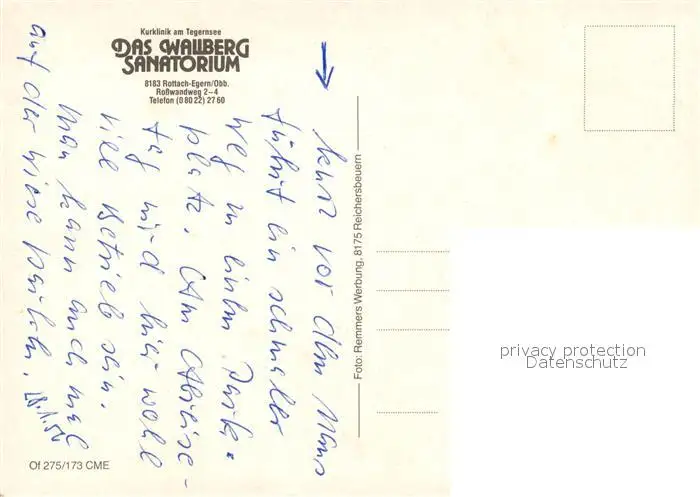 Kurklinik am Tegernsee
DAS WALLBERG
SANATORIUM
8183 Rottach-Egern/Obb.
Roßwandweg 2–4
Telefon (0 80 22) 27 60
kurz vor dem Haus
führt ein schmaler
Weg zu einem Park-
platz. Am Abreise-
tag wird hier wohl
viel Betrieb sein.
Man kann auch mal
auf der Wiese parken.
Foto: Remmers Werbung, 8175 Reichersbeuern
privacy protection
Datenschutz
Of 275/173 CME